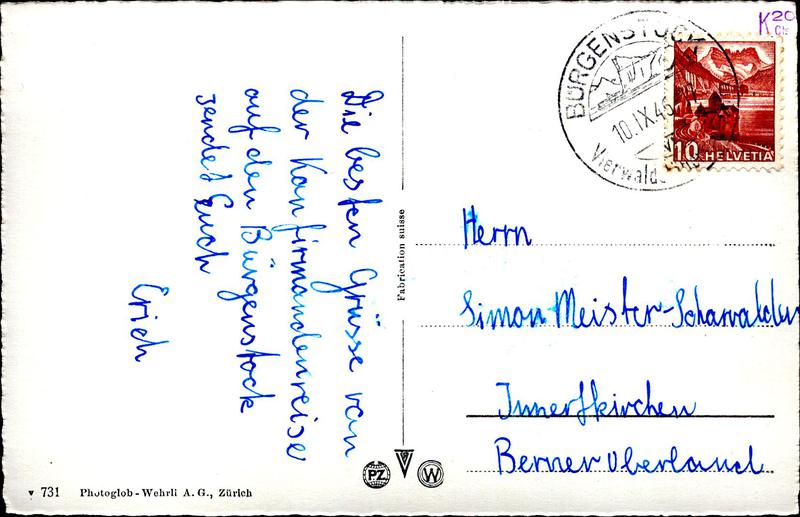 Die besten Grüsse von
der Konfirmandenreise
auf den Bürgenstock
sendet Euch
Erich
Fabrication suisse
BÜRGENSTOCK
10.IX.45
Vierwalds
K 20 Cts
10 HELVETIA
Herrn
Simon Meister-Scharvalden
Innertkirchen
Berner Oberland
PZ W
731 Photoglob-Wehrli A.G., Zürich